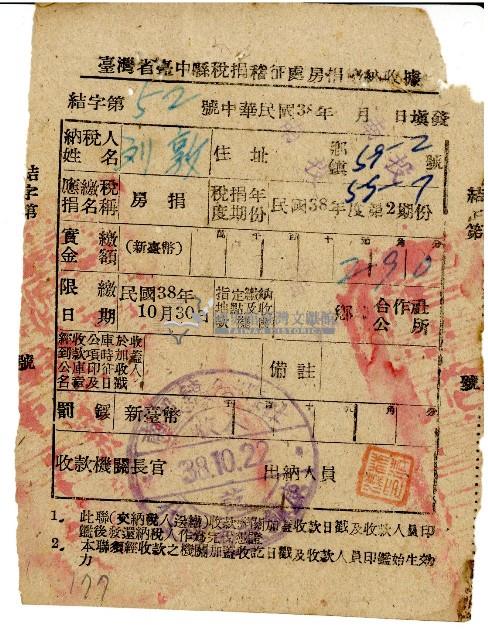 臺灣省臺中縣稅捐稽征處房捐繳納收據
結字第 52 號中華民國38年 月 日填發
納稅人姓名 劉敦 住址 鄉鎮 59-2 號
55-7
應繳稅捐名稱 房捐 稅捐年度期份 民國38年度第2期份
實繳金額 (新臺幣) 萬 千 百 十 元 角 分
2 9 0
限繳日期 民國38年10月30 指定繳納地點及收款機關 鄉 合作社 公所
經收公庫於收款項時加蓋到公印征收人名章及日戳 備註
罰鍰 新臺幣 千 百 十 元 角 分
38.10.22
收款機關長官 出納人員
1. 此聯(交納稅人送繳)收款機關加蓋收款日戳及收款人員印
鑑後發還納稅人作為完稅憑證
2. 本聯須經收款之機關加蓋收訖日戳及收款人員印鑑始生效
力
結字第
號
177
國史館臺灣文獻館
TAIWAN HISTORICA